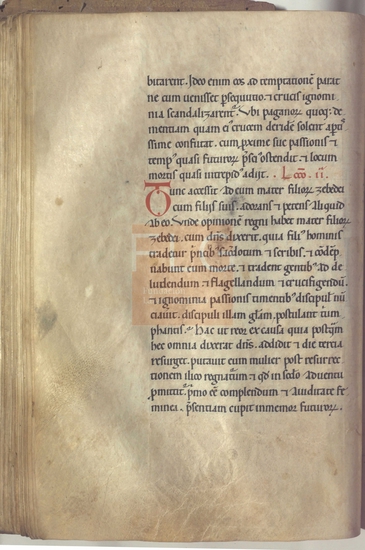 bitarent. Ideo enim eos ad temptationē parat
ne cum venisset ꝑsequutio. ⁊ crucis ignomi
nia scandalizarent᷑. Ubi paganoꝝ quoq; de
mentiam quam cū crucem deridē solent apti
ssime confutat. cum ꝓxime sue passionis ⁊
temp᷒ quasi futuroꝝ p̄sci᷒ ostendit. ⁊ locum
mortis quasi intrepid᷒ adiit. Lc̄o. ii.
Tunc accessit ad eum mater filioꝝ zebedei
cum filiis suis. adorans ⁊ petens aliquid
ab eo. Unde opinionē regni habet mater filioꝝ
zebedei. cum dn̄s dixerit. quia fili᷒ hominis
tradetur p̄ncib᷒ sac̄dotum ⁊ scribis. ⁊ cōdēp
nabunt eum morte. ⁊ tradent gentib᷒ ad de
ludendum ⁊ flagellandum ⁊ crucifigendū.
⁊ ignominia passionis timentib᷒ discipul᷒ nū
ciavit. discipuli illam glām. postulant cum
phantis. Hac ut reor ex causa quia postq̄m
hec omnia dixerat dn̄s. addidit ⁊ die tercia
resurget. putavit eum mulier post resurrec
tionem ilico regnatuꝝ ⁊ qđ in sc̄do adventu
ꝓmittit᷑. p̄mo eē complendum ⁊ aviditate fe
minea. p̄sentiam cupit inmemor futuroꝝ.